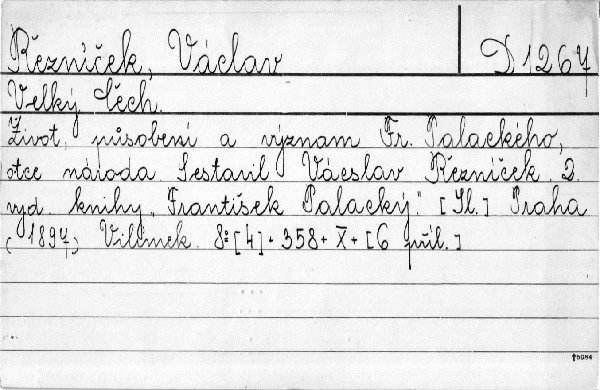 Řezníček, Václav D 1267
Velký Čech.
Život, působení a význam Fr. Palackého,
otce národa. Sestavil Vácslav Řezníček. 2.
vyd. knihy „František Palacký." [Il.] Praha
(1897) Vilímek. 8° [4] + 358 + X + [6 příl.]